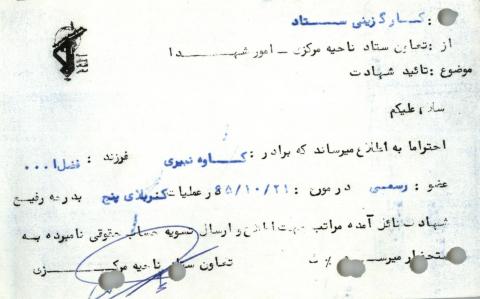 : کارگزینی ستاد
از : تعاون ستاد ناحیه مرکزی ـ امور شهدا
موضوع : تائید شهادت
سلام علیکم
احتراما به اطلاع میرساند که برادر : کاوه نبیری فرزند : فضل ا ...
عضو : رسمی در مورخ : ۶۵/۱۰/۲۱ در عملیات کربلای پنج بدرجه رفیع
شهادت نائل آمده مراتب جهت اطلاع و ارسال تسویه حساب حقوقی نامبرده به
استحضار میرسد
تعاون ستاد ناحیه مرکزی